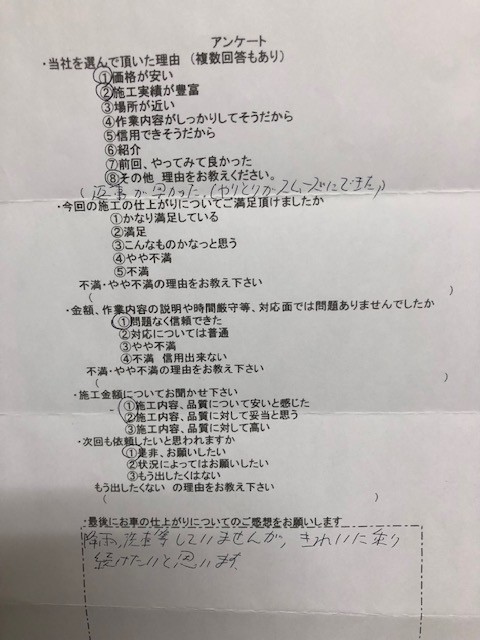 アンケート
・当社を選んで頂いた理由 （複数回答もあり）
①価格が安い
②施工実績が豊富
③場所が近い
④作業内容がしっかりしてそうだから
⑤信用できそうだから
⑥紹介
⑦前回、やってみて良かった
⑧その他 理由をお教えください。
(返事が早かった。(やりとりがスムーズにできた))
・今回の施工の仕上がりについてご満足頂けましたか
①かなり満足している
②満足
③こんなものかなっと思う
④やや不満
⑤不満
不満・やや不満の理由をお教え下さい
( )
・金額、作業内容の説明や時間厳守等、対応面では問題ありませんでしたか
①問題なく信頼できた
②対応については普通
③やや不満
④不満 信用出来ない
不満・やや不満の理由をお教え下さい
( )
・施工金額についてお聞かせ下さい
①施工内容、品質について安いと感じた
②施工内容、品質に対して妥当と思う
③施工内容、品質に対して高い
・次回も依頼したいと思われますか
①是非、お願いしたい
②状況によってはお願いしたい
③もう出したくはない
もう出したくない の理由をお教え下さい
( )
・最後にお車の仕上がりについてのご感想をお願いします
降雨、洗車等していませんが、きれいに乗り
続けたいと思います